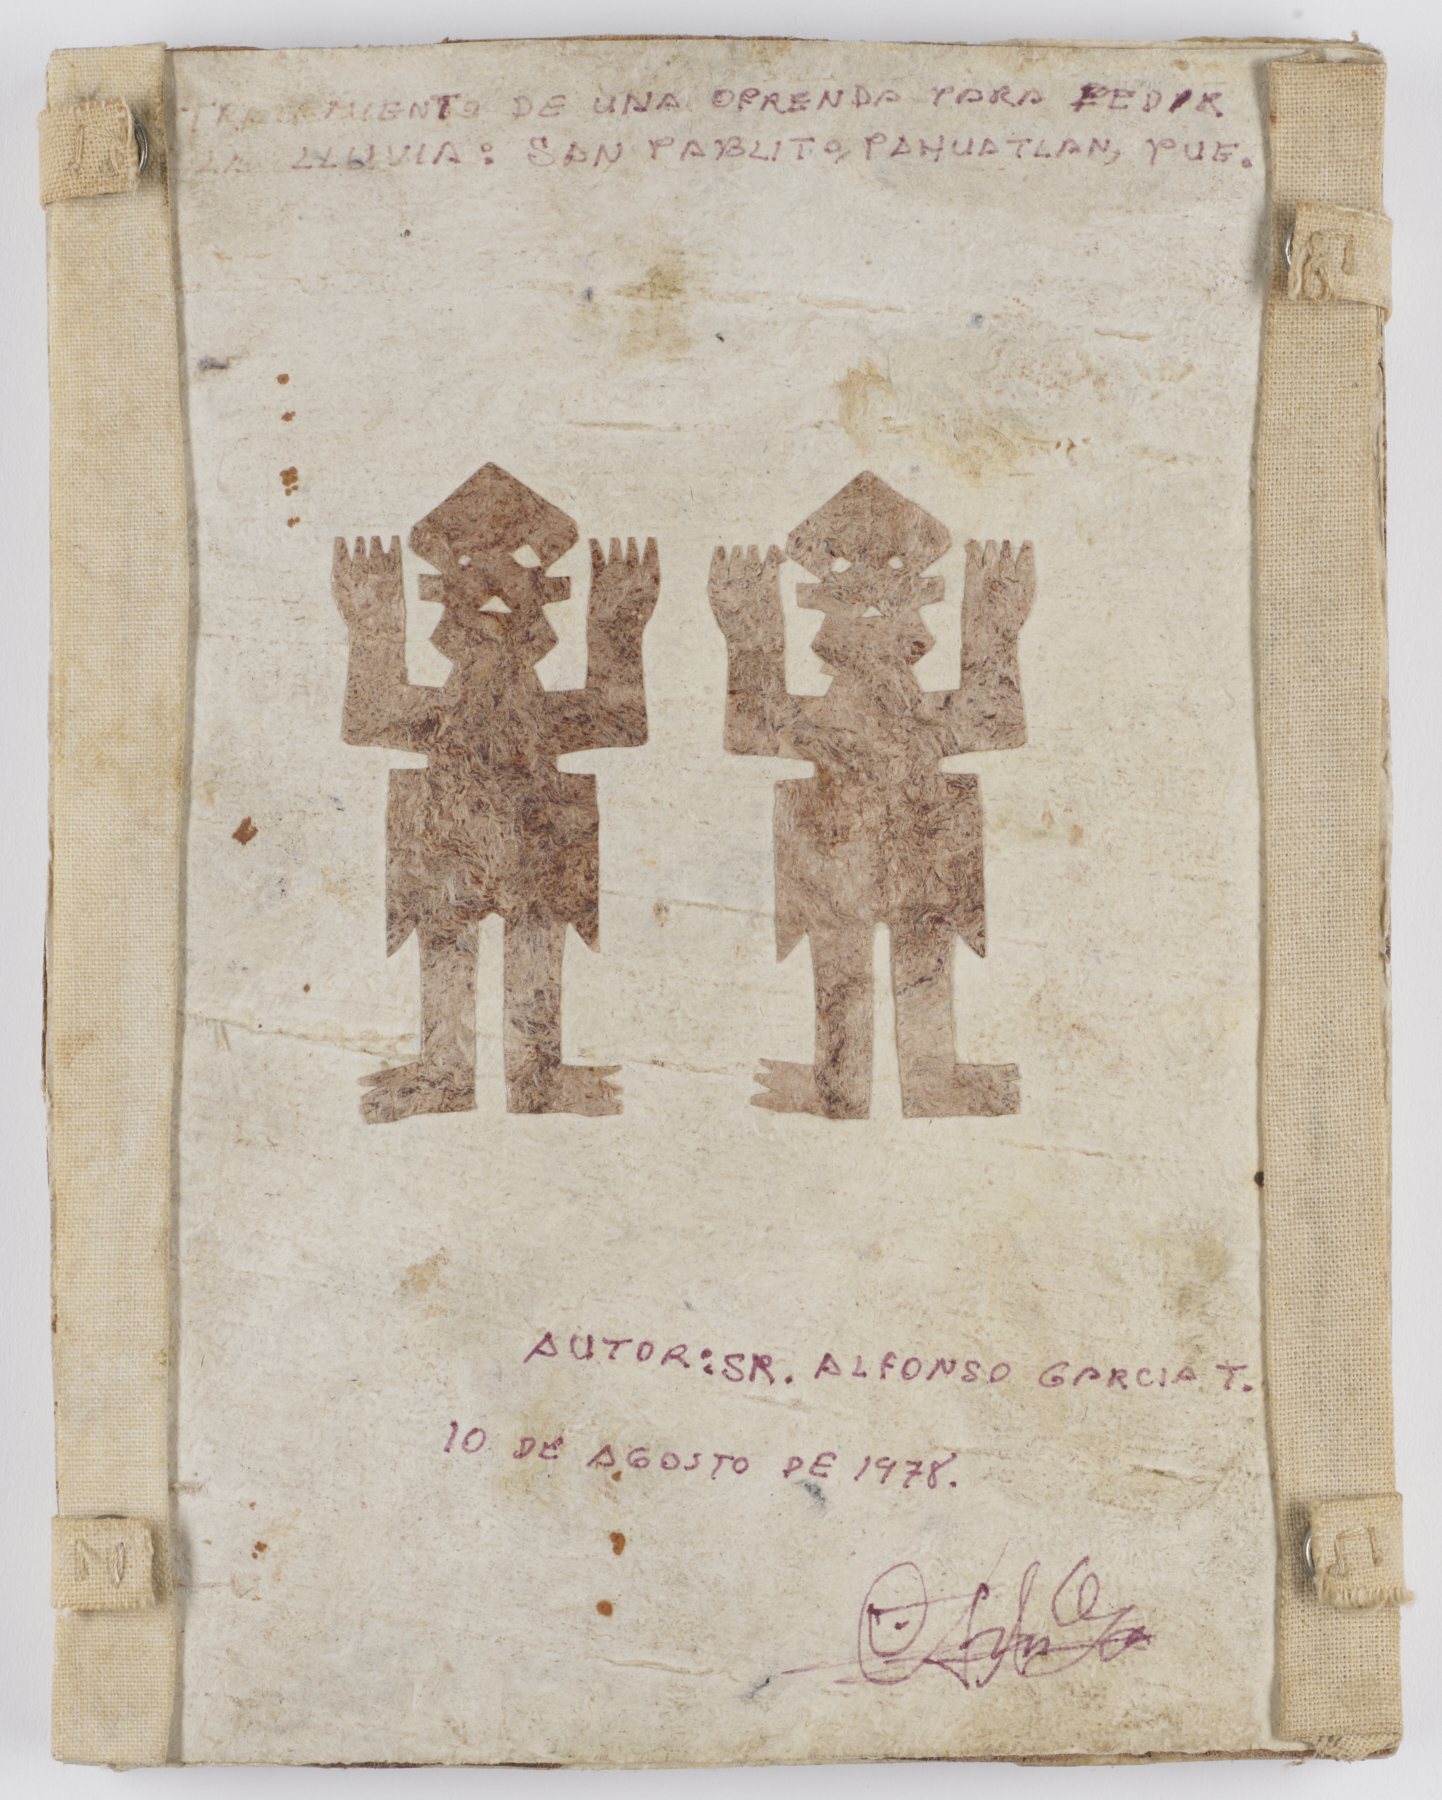 TRATAMIENTO DE UNA OFRENDA PARA PEDIR
LA LLUVIA: SAN PABLITO, PAHUATLAN, PUE.
AUTOR: SR. ALFONSO GARCIA T.
10 DE AGOSTO DE 1978.